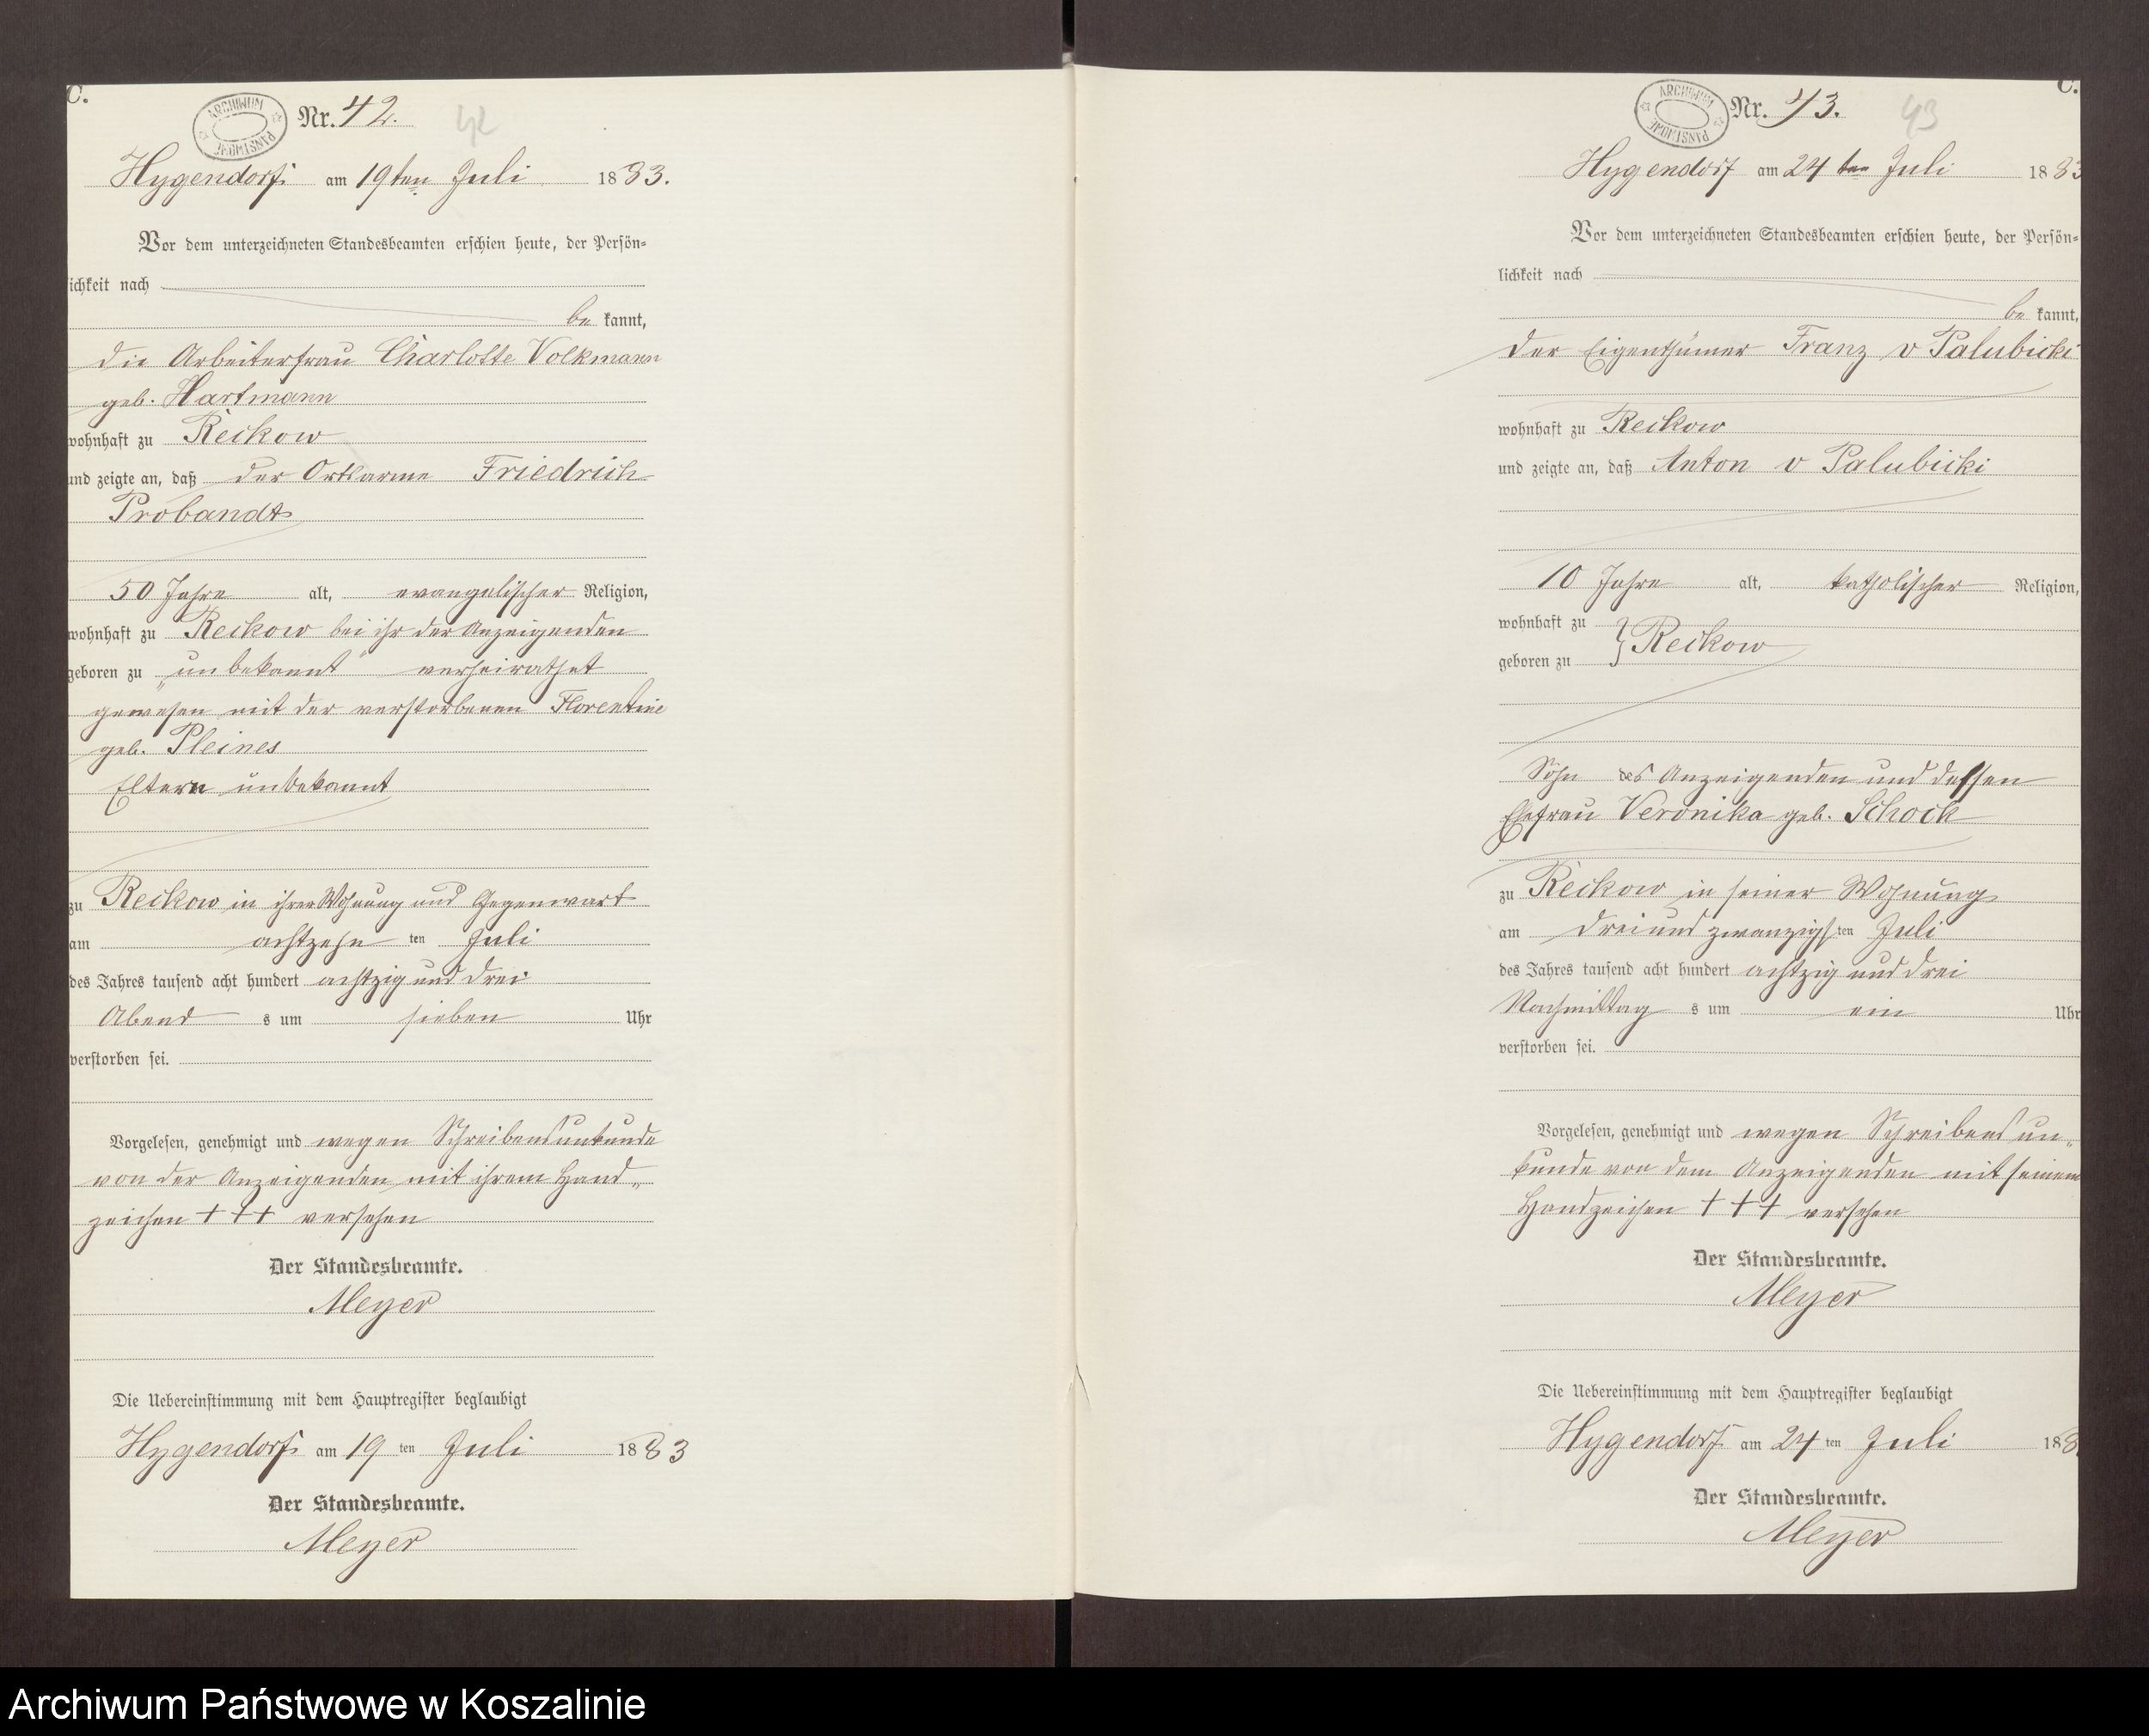 C.
ARCHIWUM PAŃSTWOWE
Nr. 42.
42
Hygendorf am 19ten Juli 1883.
Vor dem unterzeichneten Standesbeamten erschien heute, der Persön-
lichkeit nach
be kannt,
die Arbeiterfrau Charlotte Volkmann
geb. Hartmann
wohnhaft zu Reckow
und zeigte an, daß der Ortsarme Friedrich
Probandt
50 Jahre alt, evangelischer Religion,
wohnhaft zu Reckow bei ihr der Anzeigenden
geboren zu „unbekannt“ verheirathet
gewesen mit der verstorbenen Florentine
geb. Pleines
Eltern unbekannt
zu Reckow in ihrer Wohnung und Gegenwart
am achtzehn ten Juli
des Jahres tausend acht hundert achtzig und drei
Abend s um sieben Uhr
verstorben sei.
Vorgelesen, genehmigt und wegen Schreibensunkunde
von der Anzeigenden mit ihrem Hand„
zeichen +++ versehen
Der Standesbeamte.
Meyer
Die Uebereinstimmung mit dem Hauptregister beglaubigt
Hygendorf am 19 ten Juli 1883
Der Standesbeamte.
Meyer
C.
ARCHIWUM PAŃSTWOWE
Nr. 43.
43
Hygendorf am 24ten Juli 1883
Vor dem unterzeichneten Standesbeamten erschien heute, der Persön-
lichkeit nach
be kannt,
der Eigenthümer Franz v Palubicki
wohnhaft zu Reckow
und zeigte an, daß Anton v Palubicki
10 Jahre alt, katholischer Religion,
wohnhaft zu
geboren zu } Reckow
Sohn des Anzeigenden und dessen
Ehefrau Veronika geb. Schock
zu Reckow in seiner Wohnung
am dreiundzwanzigsten Juli
des Jahres tausend acht hundert achtzig und drei
Nachmittag s um ein Uhr
verstorben sei.
Vorgelesen, genehmigt und wegen Schreibensun„
kunde von dem Anzeigenden mit seinem
Handzeichen +++ versehen
Der Standesbeamte.
Meyer
Die Uebereinstimmung mit dem Hauptregister beglaubigt
Hygendorf am 24 ten Juli 188
Der Standesbeamte.
Meyer
Archiwum Państwowe w Koszalinie